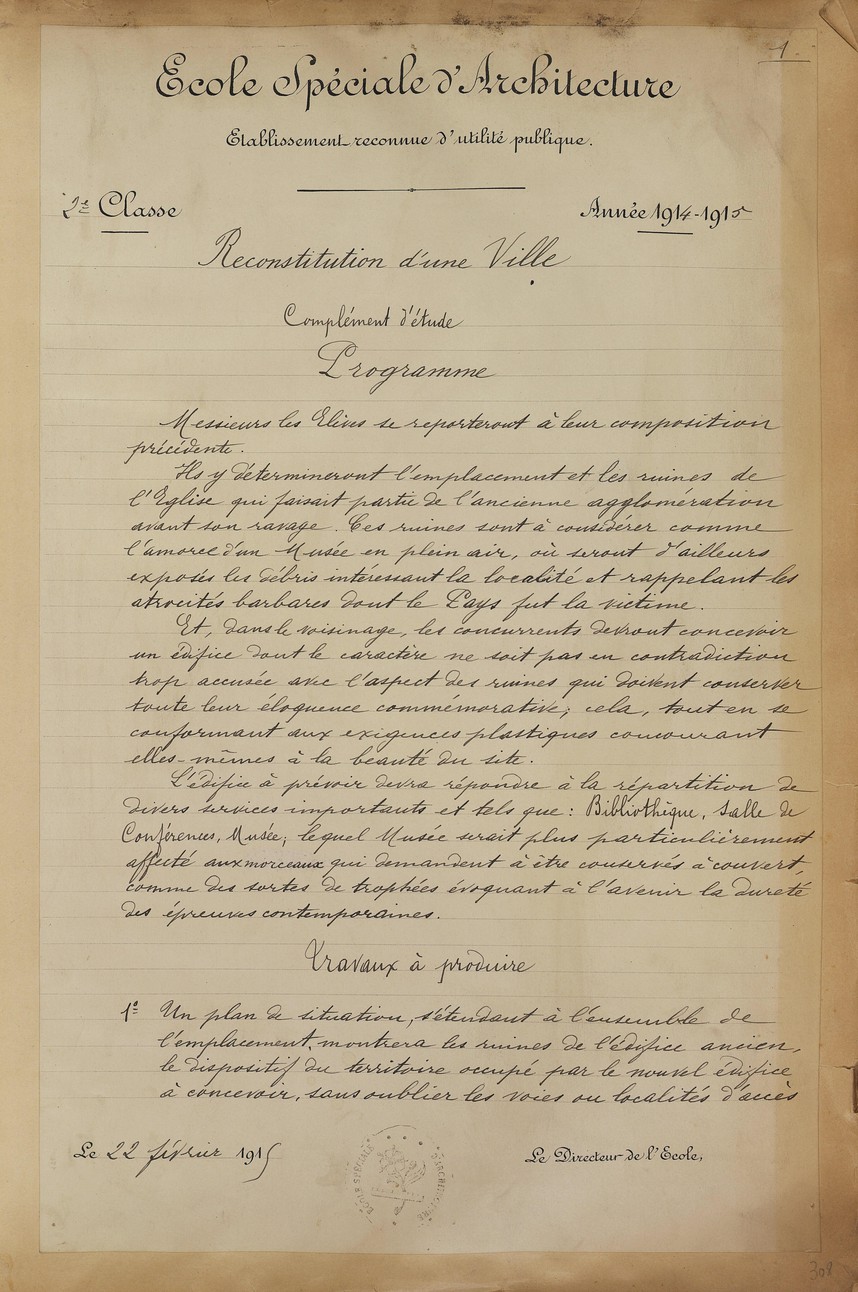 1.
Ecole Spéciale d'Architecture
Etablissement reconnue d'utilité publique.
2e Classe
Année 1914-1915
Reconstitution d'une Ville
Complément d'étude
Programme
Messieurs les Elèves se reporteront à leur composition
précédente.
Ils y détermineront l'emplacement et les ruines de
l'Eglise qui faisait partie de l'ancienne agglomération
avant son ravage. Ces ruines sont à considérer comme
l'amorce d'un Musée en plein air, où seront d'ailleurs
exposés les débris intéressant la localité et rappelant les
atrocités barbares dont le Pays fut la victime.
Et, dans le voisinage, les concurrents devront concevoir
un édifice dont le caractère ne soit pas en contradiction
trop accusée avec l'aspect des ruines qui doivent conserver
toute leur éloquence commémorative; cela, tout en se
conformant aux exigences plastiques concourant
elles-mêmes à la beauté du site.
L'édifice à prévoir devra répondre à la répartition de
divers services importants et tels que: Bibliothèque, Salle de
Conférences, Musée; lequel Musée serait plus particulièrement
affecté aux morceaux qui demandent à être conservés à couvert,
comme des sortes de trophées évoquant à l'avenir la dureté
des épreuves contemporaines.
Travaux à produire
1º Un plan de situation, s'étendant à l'ensemble de
l'emplacement, montrera les ruines de l'édifice ancien,
le dispositif du territoire occupé par le nouvel édifice
à concevoir, sans oublier les voies ou localités d'accès
Le 22 février 1915
Le Directeur de l'Ecole,
ECOLE SPECIALE D'ARCHITECTURE
308